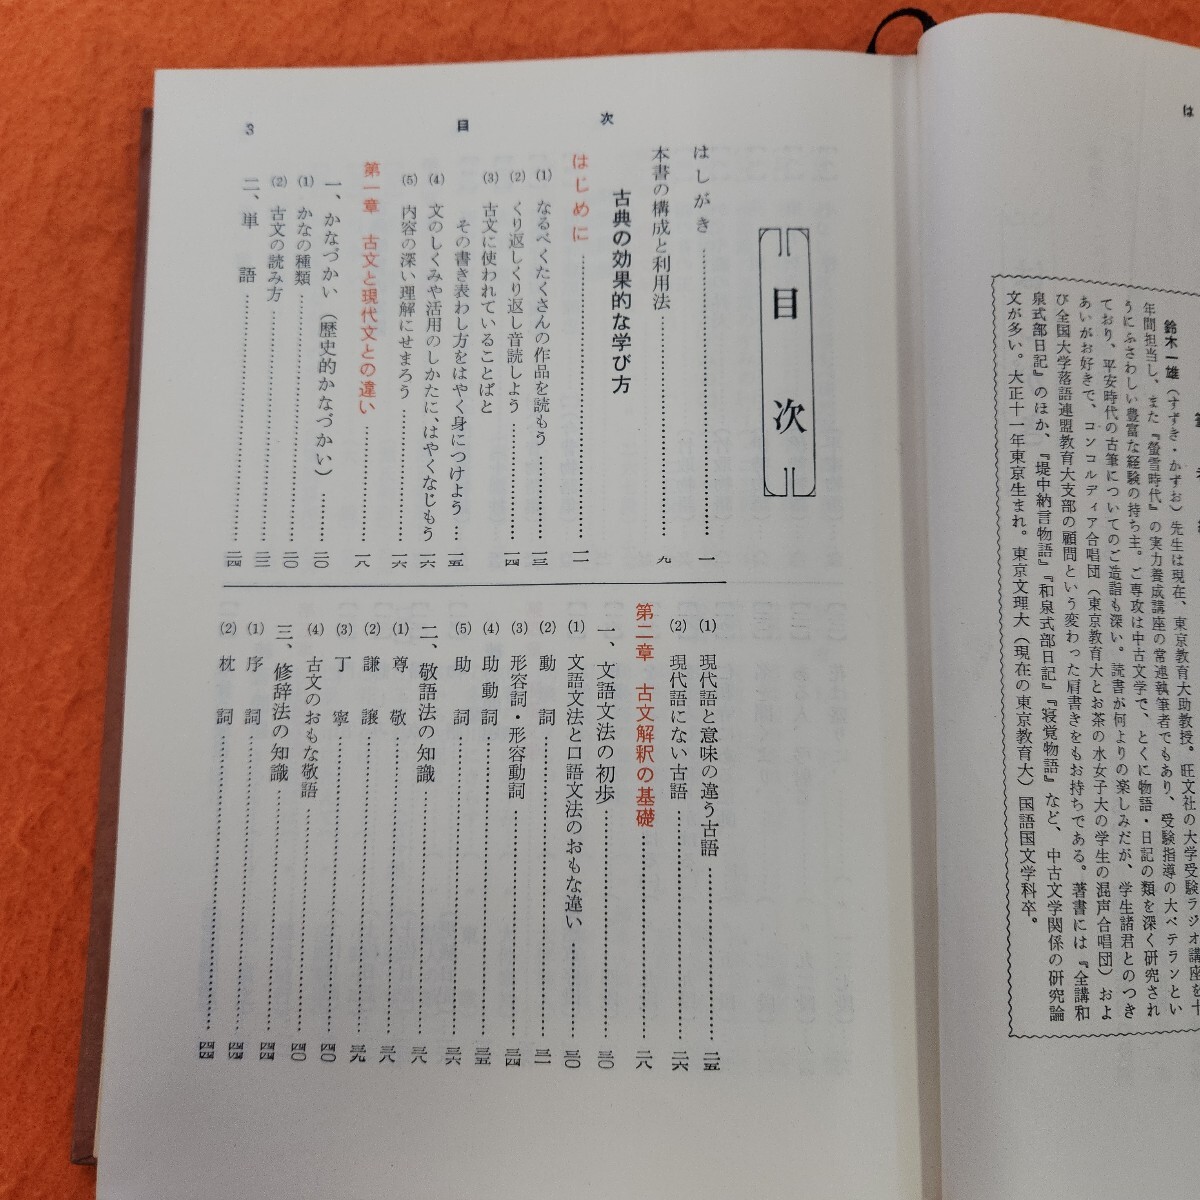 は
鈴木一雄（すずき・かずお）先生は現在、東京教育大助教授。旺文社の大学受験ラジオ講座を十
年間担当し、また『螢雪時代』の実力養成講座の常連執筆者でもあり、受験指導の大ベテランとい
うにふさわしい豊富な経験の持ち主。ご専攻は中古文学で、とくに物語・日記の類を深く研究され
ており、平安時代の古筆についてのご造詣も深い。読書が何よりの楽しみだが、学生諸君とのつき
あいがお好きで、コンコルディア合唱団（東京教育大とお茶の水女子大の学生の混声合唱団）およ
び全国大学落語連盟教育大支部の顧問という変わった肩書きをもお持ちである。著書には『全講和
泉式部日記』のほか、『堤中納言物語』『和泉式部日記』『寝覚物語』など、中古文学関係の研究論
文が多い。大正十一年東京生まれ。東京文理大（現在の東京教育大）国語国文学科卒。
目次
次
目
3
はしがき………一
本書の構成と利用法………九
古典の効果的な学び方
はじめに………一一
(1) なるべくたくさんの作品を読もう………一三
(2) くり返しくり返し音読しよう………一四
(3) 古文に使われていることばと
その書き表わし方をはやく身につけよう…一五
(4) 文のしくみや活用のしかたに、はやくなじもう 一六
(5) 内容の深い理解にせまろう………一六
第一章 古文と現代文との違い………一八
一、かなづかい（歴史的かなづかい）………二〇
(1) かなの種類………二〇
(2) 古文の読み方………二二
二、単語………二四
(1) 現代語と意味の違う古語………二五
(2) 現代語にない古語………二六
第二章 古文解釈の基礎………二八
一、文語文法の初歩………三〇
(1) 文語文法と口語文法のおもな違い………三〇
(2) 動詞………三一
(3) 形容詞・形容動詞………三四
(4) 助動詞………三五
(5) 助詞………三六
二、敬語法の知識………三八
(1) 尊敬………三八
(2) 謙譲………三九
(3) 丁寧………四〇
(4) 古文のおもな敬語………四〇
三、修辞法の知識………四四
(1) 序詞………四四
(2) 枕詞………四四